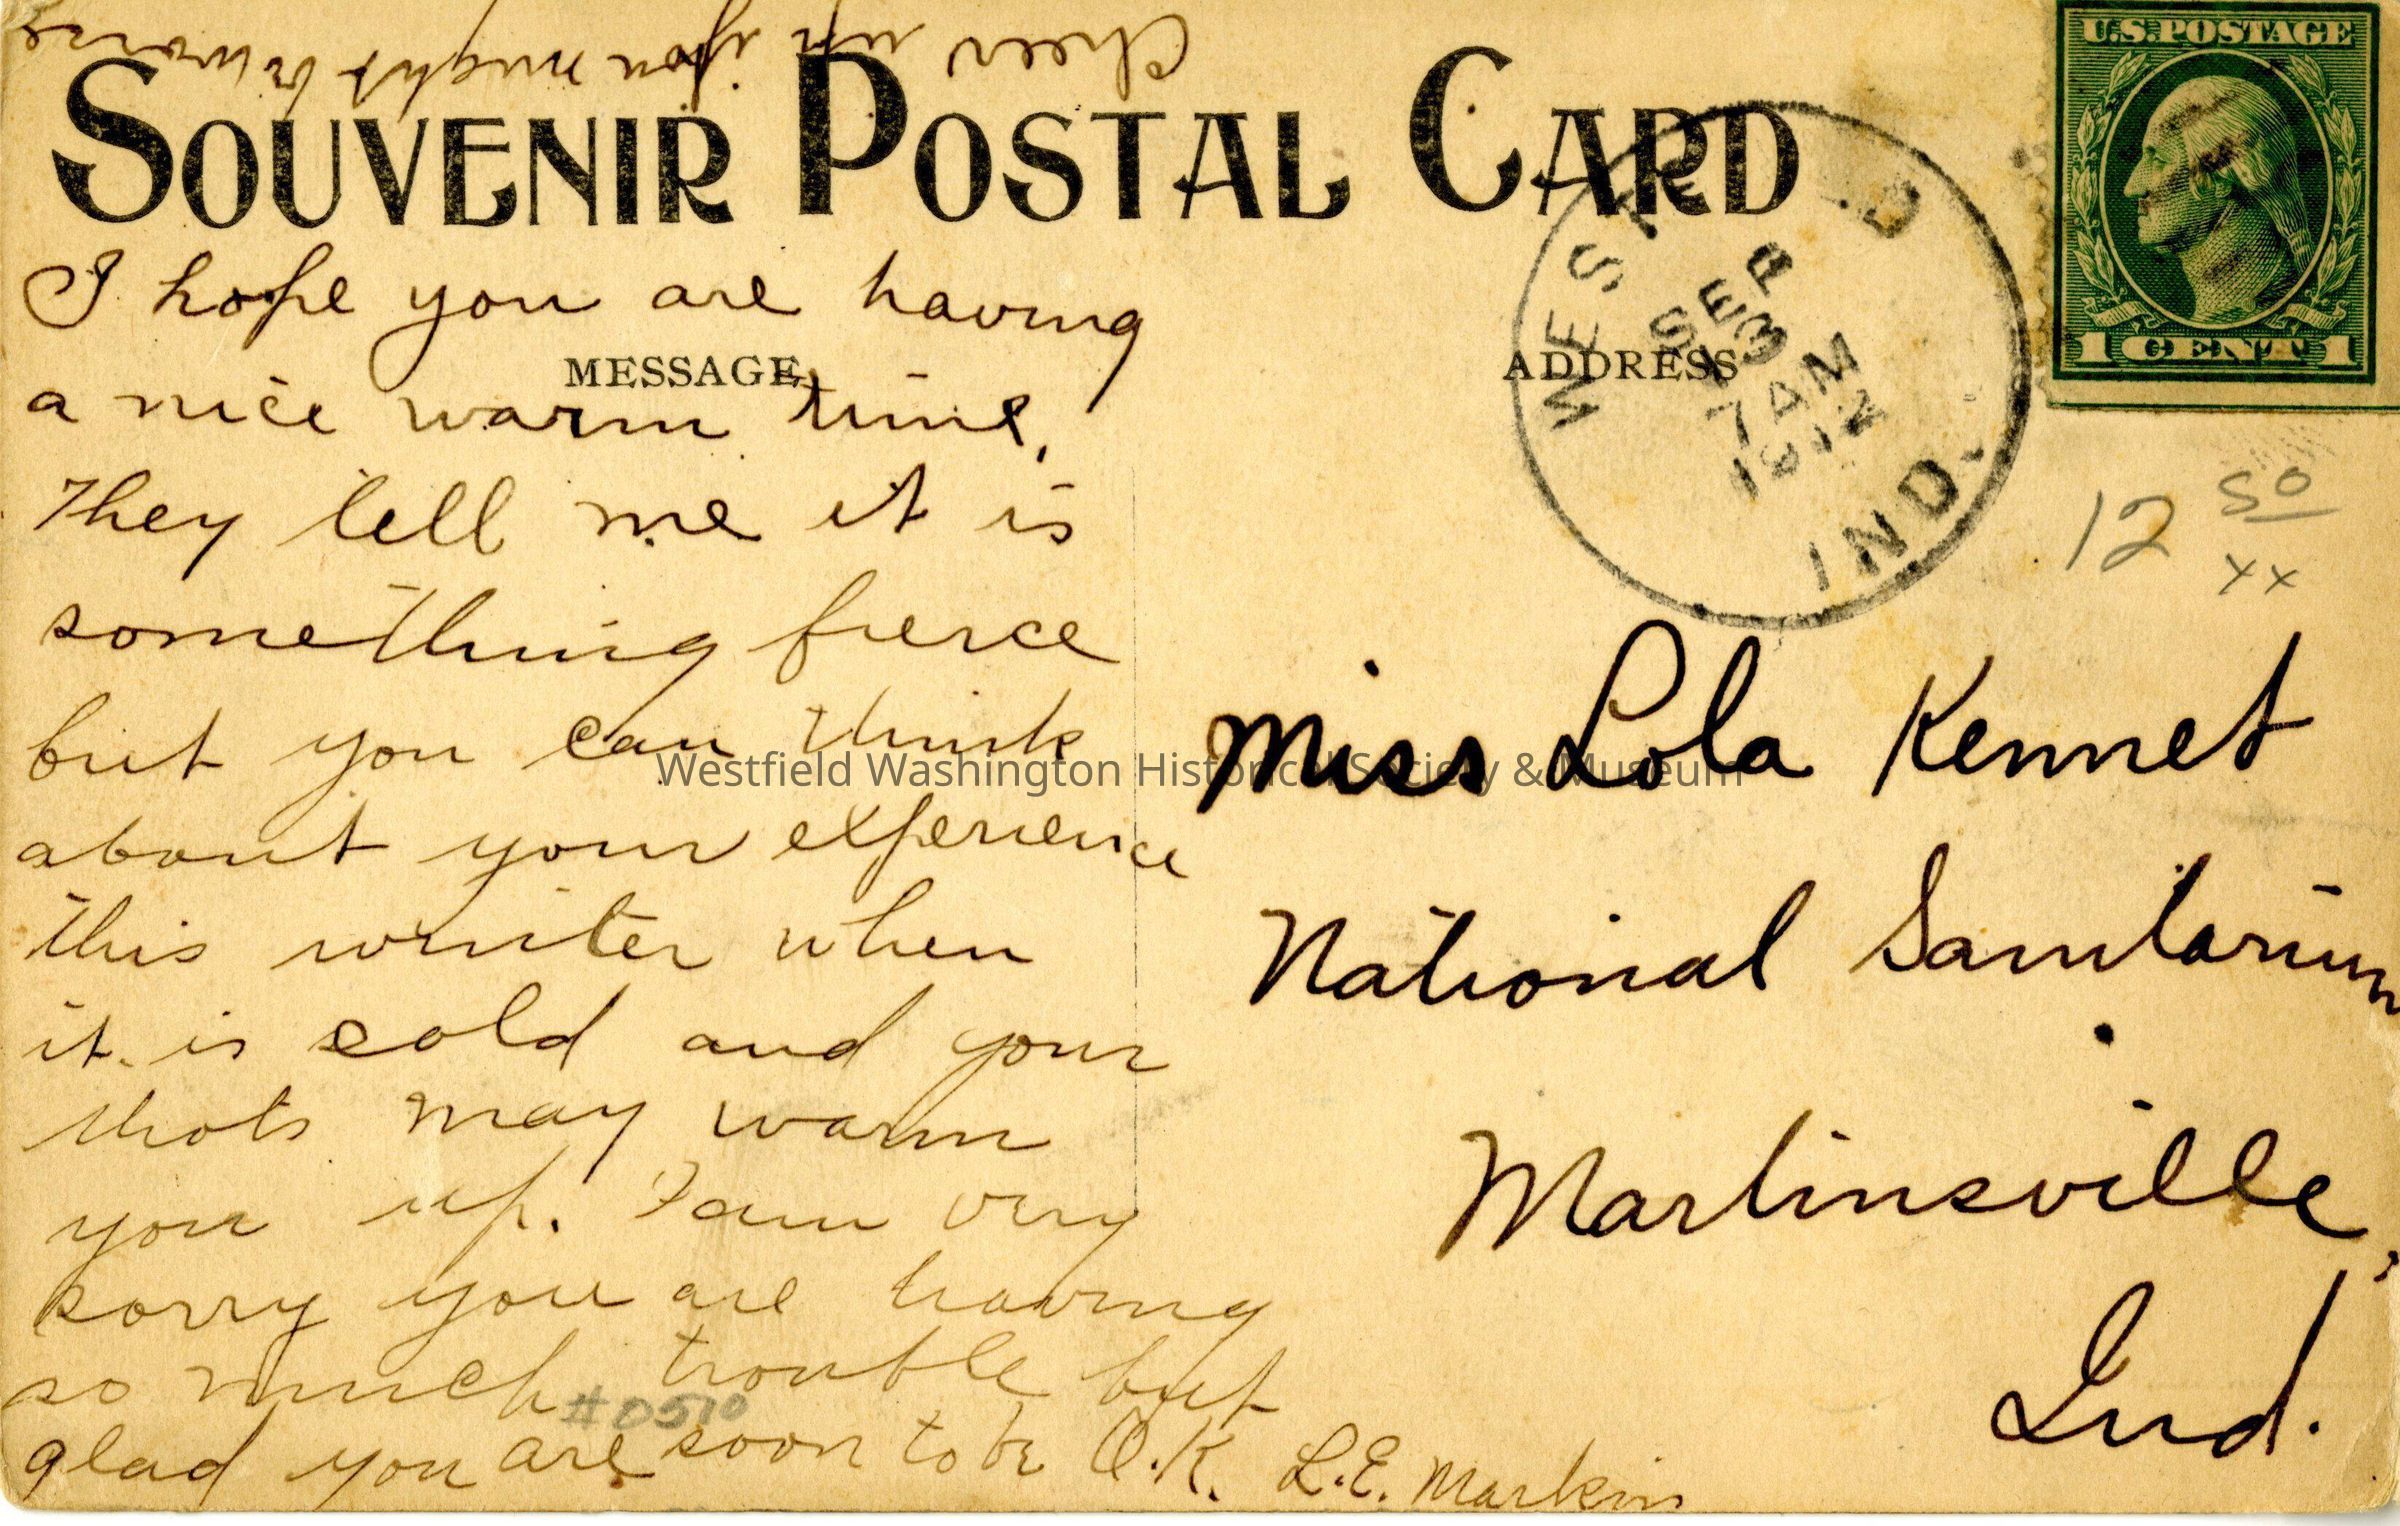 Cheer up if you might be worse
SOUVENIR POSTAL CARD
U.S. POSTAGE
1 CENT 1
WESTFIELD
SEP
13
7 AM
1912
IND.
MESSAGE
ADDRESS
I hope you are having
a nice warm time.
They tell me it is
something fierce
but you can think
about your experience
this winter when
it is cold and your
thots may warm
you up. I am very
sorry you are having
so much trouble but
glad you are soon to be O.K. L.E. Markin
#0570
12 50
xx
Miss Lola Kennet
National Sanitarium
Martinsville,
Ind.
Westfield Washington Historical Society & Museum